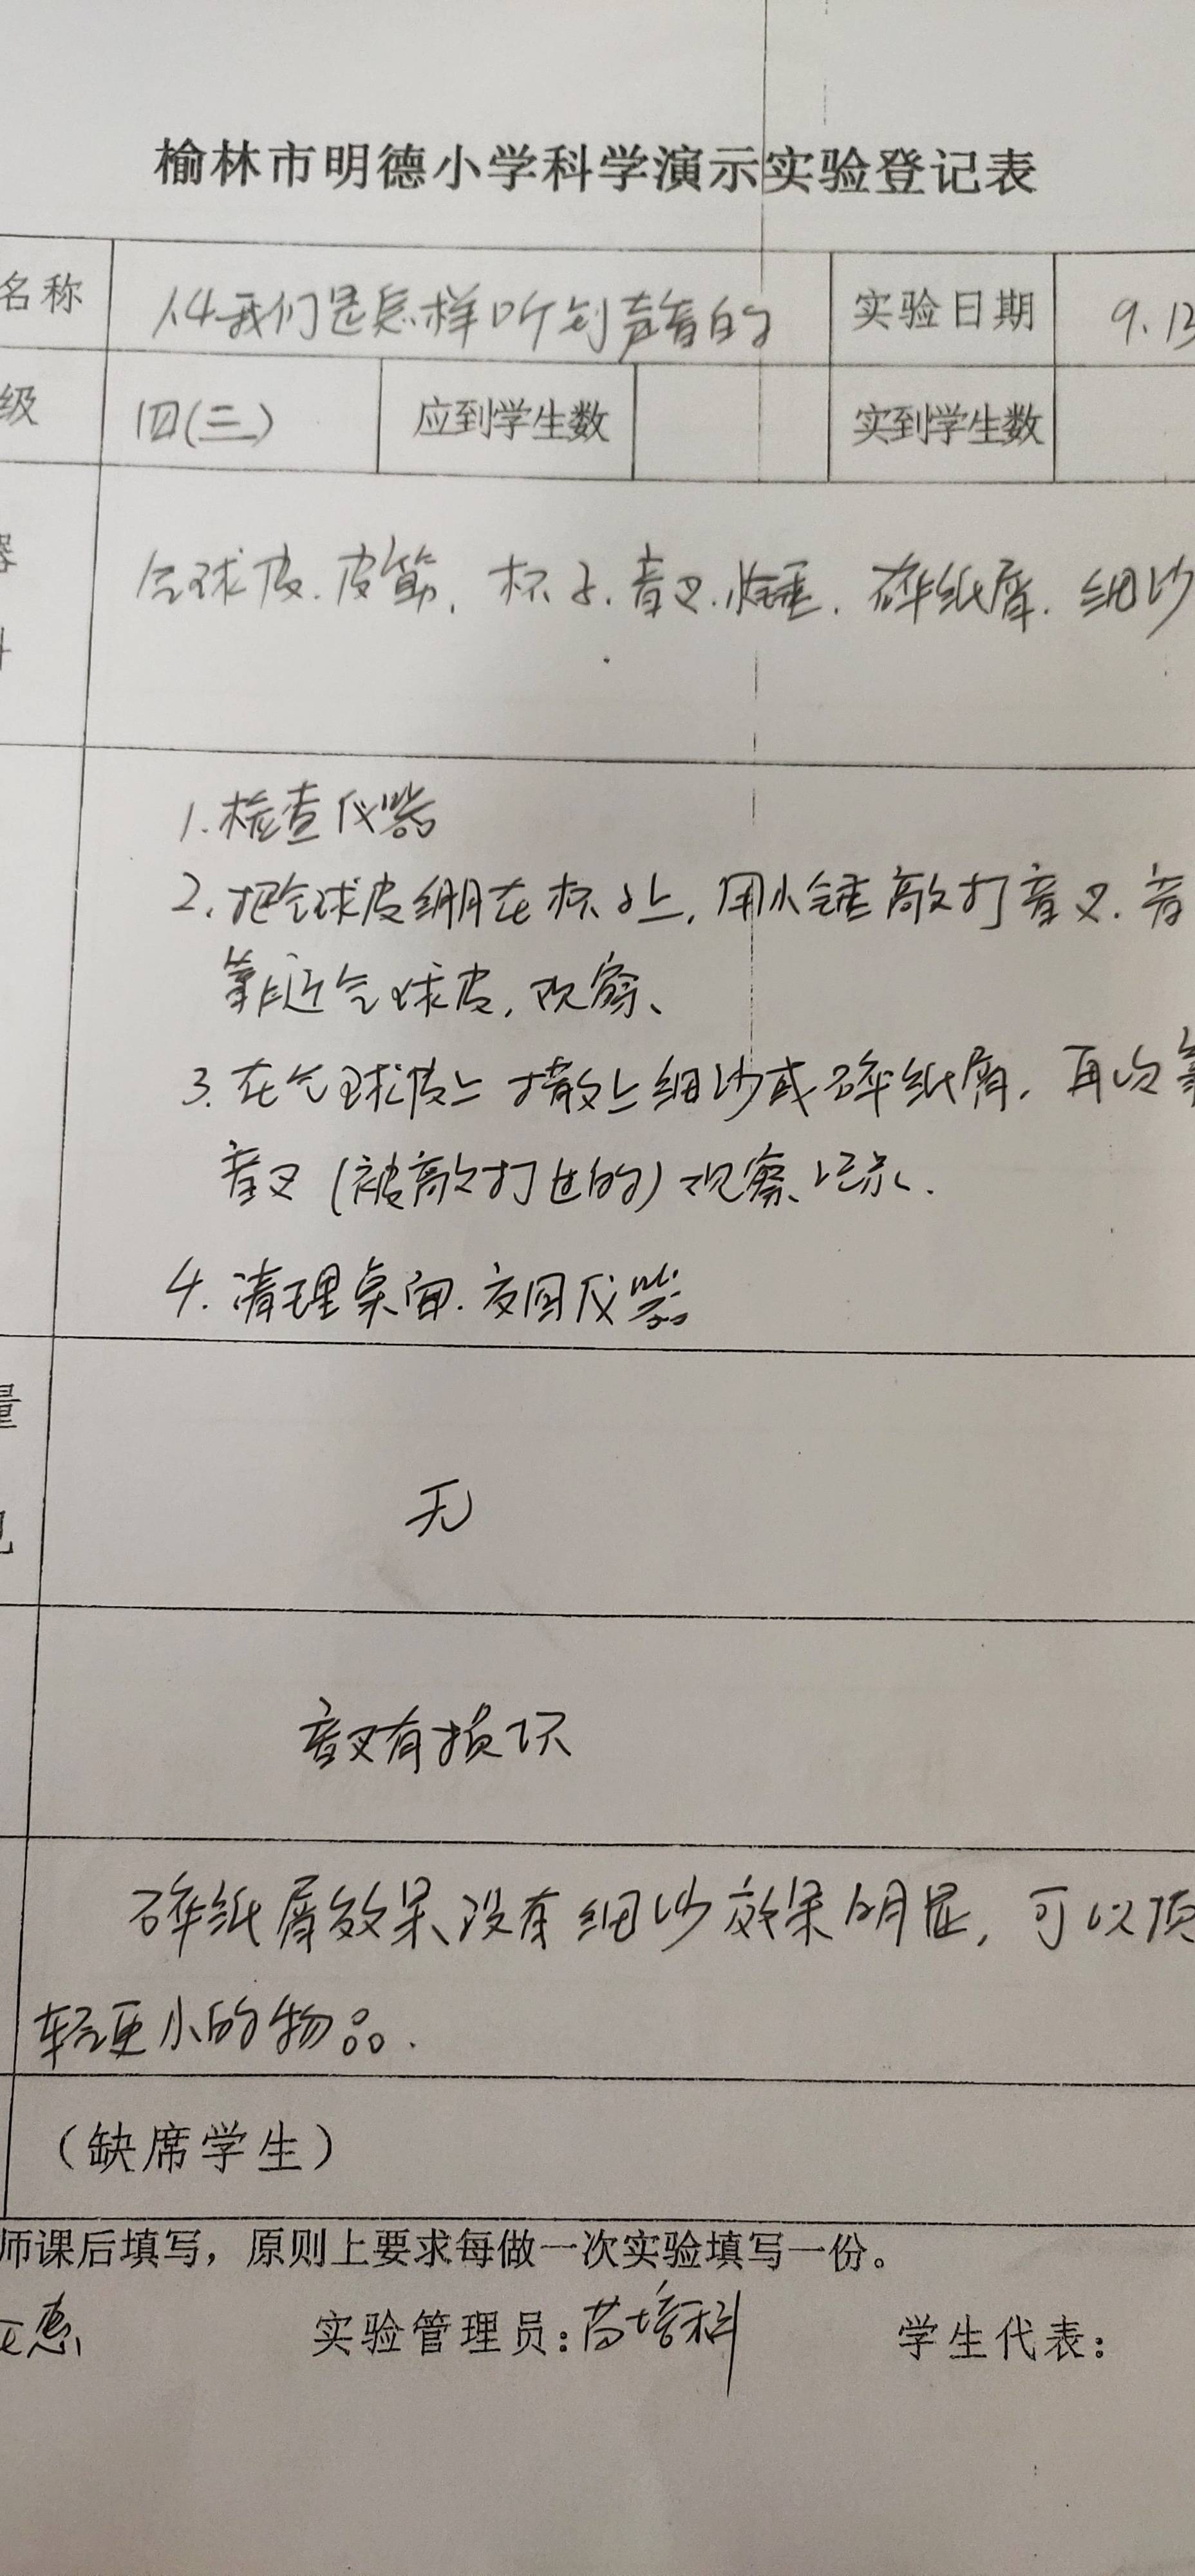 榆林市明德小学科学演示实验登记表
名称 1.4我们是怎样听到声音的 实验日期 9.13
级 四(三) 应到学生数 实到学生数
气球皮.皮筋.杯子.音叉.小锤.碎纸屑.细沙
1.检查仪器
2.把气球皮绷在杯子上,用小锤敲打音叉.音
靠近气球皮,观察、
3.在气球皮上撒上细沙或碎纸屑.再次靠
音叉(被敲打过的)观察、记录.
4.清理桌面.放回仪器
量
无
音叉有损坏
碎纸屑效果没有细沙效果明显,可以换
轻更小的物品.
(缺席学生)
师课后填写，原则上要求每做一次实验填写一份。
惠 实验管理员:苗培科 学生代表: